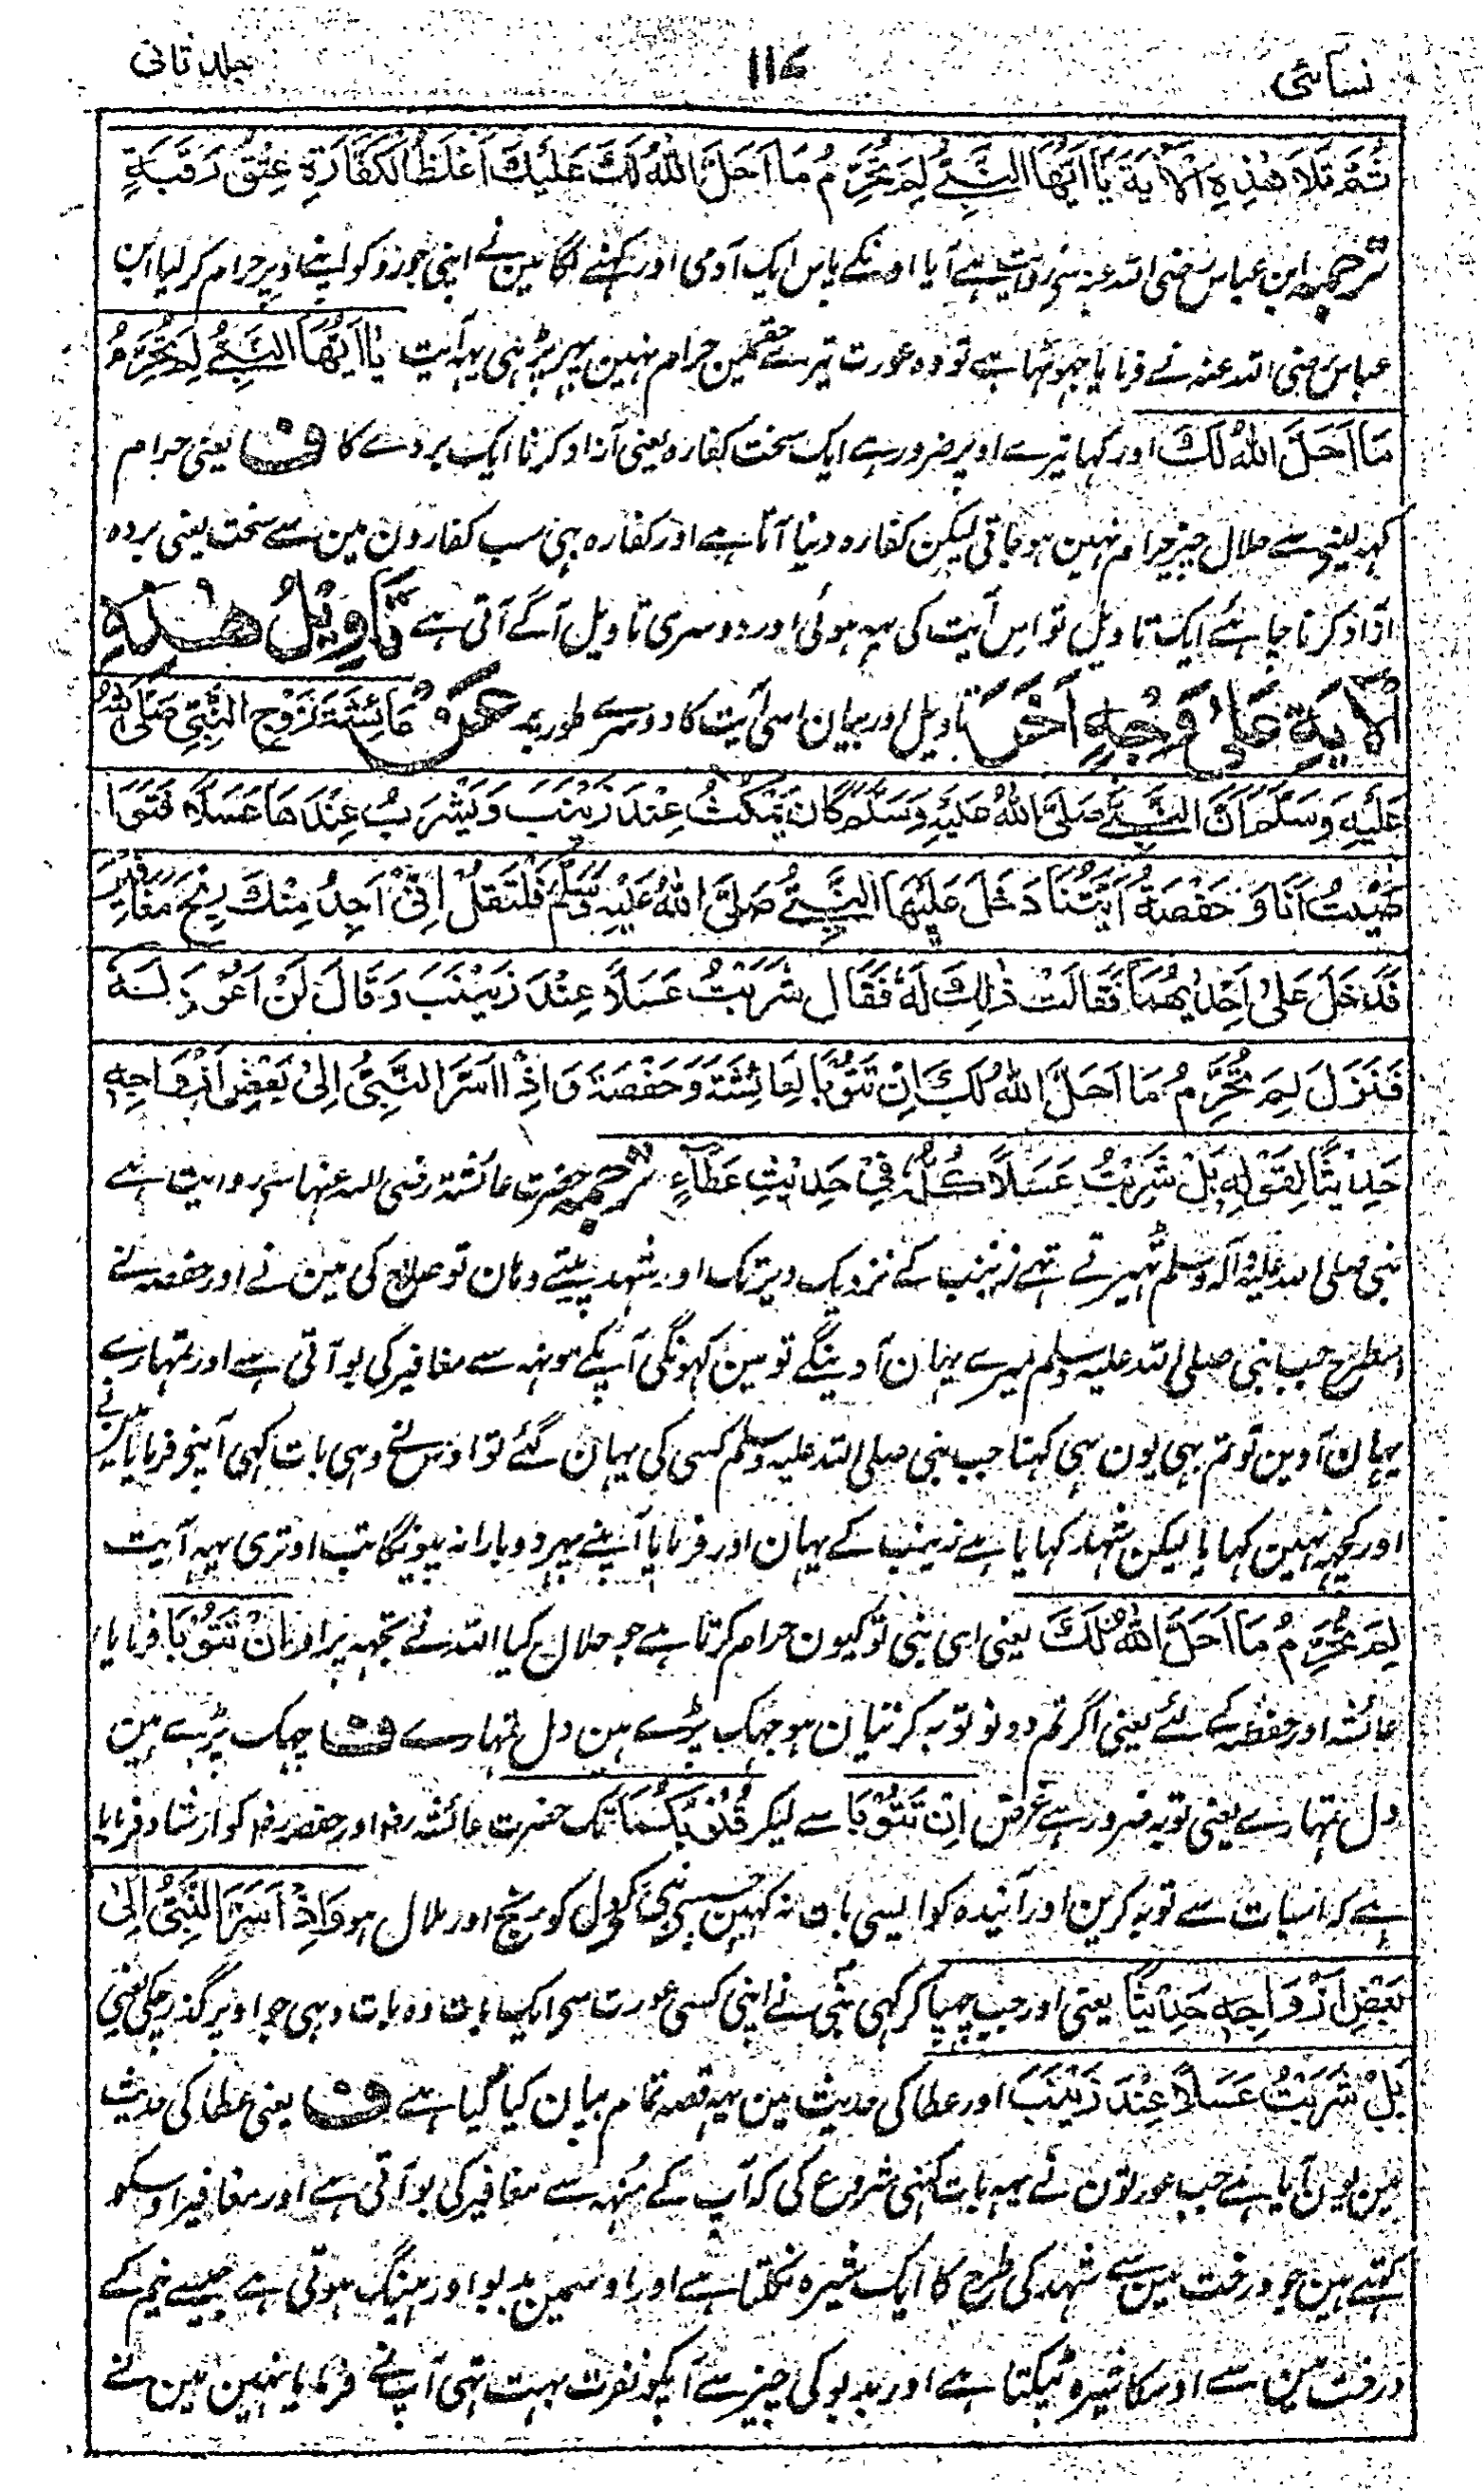 نسائی ۱۱۷ جلد ثانی
ثُمَّ تَلَا هٰذِهِ الْاٰيَةَ يَا اَيُّهَا النَّبِيُّ لِمَ تُحَرِّمُ مَا اَحَلَّ اللهُ لَكَ عَلَيْكَ اَغْلَظُ الْكَفَّارَةِ عِتْقُ رَقَبَةٍ
ترجمہ ابن عباس رضی اللہ عنہ سے روایت ہے آیا اونکے پاس ایک آدمی اور کہنے لگا مین نے اپنی جورو کو اپنے اوپر حرام کر لیا ابن
عباس رضی اللہ عنہ نے فرمایا جہوٹہا ہے تو وہ عورت تیرے حقمین حرام نہین پہر پڑہی یہہ آیت يَا اَيُّهَا النَّبِيُّ لِمَ تُحَرِّمُ
مَا اَحَلَّ اللهُ لَكَ اور کہا تیرے اوپر ضرور ہے ایک سخت کفارہ یعنی آزاد کرنا ایک بردے کا ف یعنی حرام
کہہ لینے سے حلال چیز حرام نہین ہو جاتی لیکن کفارہ دینا آتا ہے اور کفارہ بہی سب کفارون مین سے سخت یعنی بردہ
آزاد کرنا چاہئے ایک تاویل تو اس آیت کی یہہ ہوئی اور دوسری تاویل آگے آتی ہے تَاْوِيْلُ هٰذِهِ
الْاٰيَةِ عَلٰى وَجْهٍ اٰخَرَ تاویل اور بیان اسی آیت کا دوسرے طور پہ عَنْ عَائِشَةَ زَوْجِ النَّبِيِّ صَلَّى اللهُ
عَلَيْهِ وَسَلَّمَ اَنَّ النَّبِيَّ صَلَّى اللهُ عَلَيْهِ وَسَلَّمَ كَانَ يَمْكُثُ عِنْدَ زَيْنَبَ وَيَشْرَبُ عِنْدَهَا عَسَلًا فَتَوَا
صَيْتُ اَنَا وَحَفْصَةُ اَيَّتُنَا دَخَلَ عَلَيْهَا النَّبِيُّ صَلَّى اللهُ عَلَيْهِ وَسَلَّمَ فَلْتَقُلْ اِنِّيْ اَجِدُ مِنْكَ رِيْحَ مَغَافِيْرَ
فَدَخَلَ عَلٰى اِحْدٰيهُمَا فَقَالَتْ ذٰلِكَ لَهٗ فَقَالَ شَرِبْتُ عَسَلًا عِنْدَ زَيْنَبَ وَقَالَ لَنْ اَعُوْدَ لَهٗ
فَنَزَلَ لِمَ تُحَرِّمُ مَا اَحَلَّ اللهُ لَكَ اِنْ تَتُوْبَا لِعَائِشَةَ وَحَفْصَةَ وَاِذْ اَسَرَّ النَّبِيُّ اِلٰى بَعْضِ اَزْوَاجِهٖ
حَدِيْثًا لِقَوْلِهٖ بَلْ شَرِبْتُ عَسَلًا كُلُّهٗ فِيْ حَدِيْثِ عَطَآءٍ ترجمہ حضرت عائشہ رضی اللہ عنہا سے روایت ہے
نبی صلی اللہ علیہ وآلہ وسلم ٹہیرتے تہے زینب کے نزدیک دیر تک اور شہد پیتے وہان تو صلاح کی مین نے اور حفصہ نے
اسطرح جب نبی صلی اللہ علیہ وسلم میرے یہان آوینگے تو مین کہونگی آپکے مونہہ سے مغافیر کی بو آتی ہے اور تمہارے
یہان آوین تو تم بہی یون ہی کہنا جب نبی صلی اللہ علیہ وسلم کسی کی یہان گئے تو اوسنے وہی بات کہی آپنے فرمایا مین نے
اور کچہہ نہین کہایا لیکن شہد کہایا ہے زینب کے یہان اور فرمایا آپنے پہر دوبارا نہ پیونگا تب اوتری یہہ آیت
لِمَ تُحَرِّمُ مَا اَحَلَّ اللهُ لَكَ یعنی اے نبی تو کیون حرام کرتا ہے جو حلال کیا اللہ نے تجہہ پر اور اِنْ تَتُوْبَا فرمایا
عائشہ اور حفصہ کے لئے یعنی اگر تم دونو توبہ کرتیان ہو جہک پڑے ہین دل تمہارے ف جہک پڑے ہین
دل تمہارے یعنی توبہ ضرور ہے غرض اِنْ تَتُوْبَا سے لیکر قُلُوْبُكُمَا تک حضرت عائشہ رض اور حفصہ رض کو ارشاد فرمایا
ہے کہ اسبات سے توبہ کرین اور آیندہ کو ایسی بات نہ کہین جسسے نبی کے دل کو رنج اور ملال ہو وَاِذْ اَسَرَّ النَّبِيُّ اِلٰى
بَعْضِ اَزْوَاجِهٖ حَدِيْثًا یعنی اور جب چہپا کر کہی نبی نے اپنی کسی عورت سے ایک بات وہ بات وہی جو اوپر گذر چکی یعنی
بَلْ شَرِبْتُ عَسَلًا عِنْدَ زَيْنَبَ اور عطا کی حدیث مین یہہ قصہ تمام بیان کیا گیا ہے ف یعنی عطا کی حدیث
مین یون آیا ہے جب عورتون نے یہہ بات کہنی شروع کی کہ آپ کے مُنہہ سے مغافیر کی بو آتی ہے اور مغافیر اوسکو
کہتے ہین جو درخت مین سے شہد کی طرح کا ایک شیرہ نکلتا ہے اور اوسمین بدبو اور ہینگ ہوتی ہے جیسے نیم کے
درخت مین سے اوسکا شیرہ ٹپکتا ہے اور بدبو کی چیز سے آپکو نفرت بہت تہی آپ نے فرمایا نہین مین نے